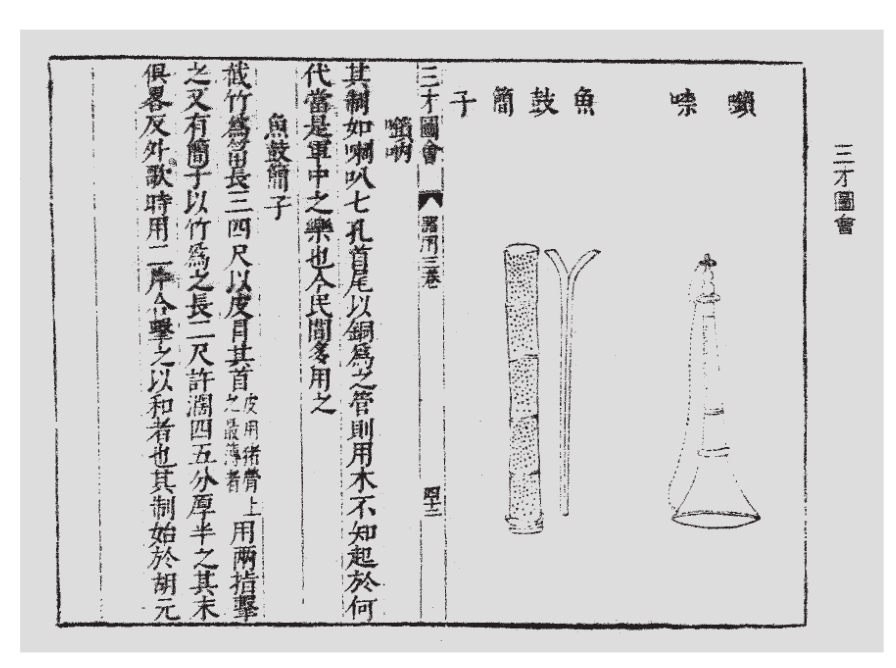 三才圖會
嗩㖠
魚鼓簡子
三才圖會 器用三卷 四十三
嗩吶
其制如喇叭七孔首尾以銅爲之管則用木不知起於何
代當是軍中之樂也今民間多用之
魚鼓簡子
截竹爲筩長三四尺以皮冒其首皮用猪膋上之最薄者用兩指擊
之又有簡子以竹爲之長二尺許濶四五分厚半之其末
俱畧反外歌時用二片合擊之以和者也其制始於胡元